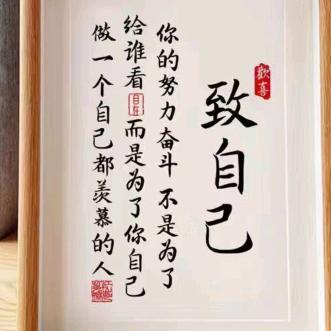 致自己
歡喜
你的努力奋斗 不是为了
给谁看 自在 而是为了你自己
做一个自己都羡慕的人